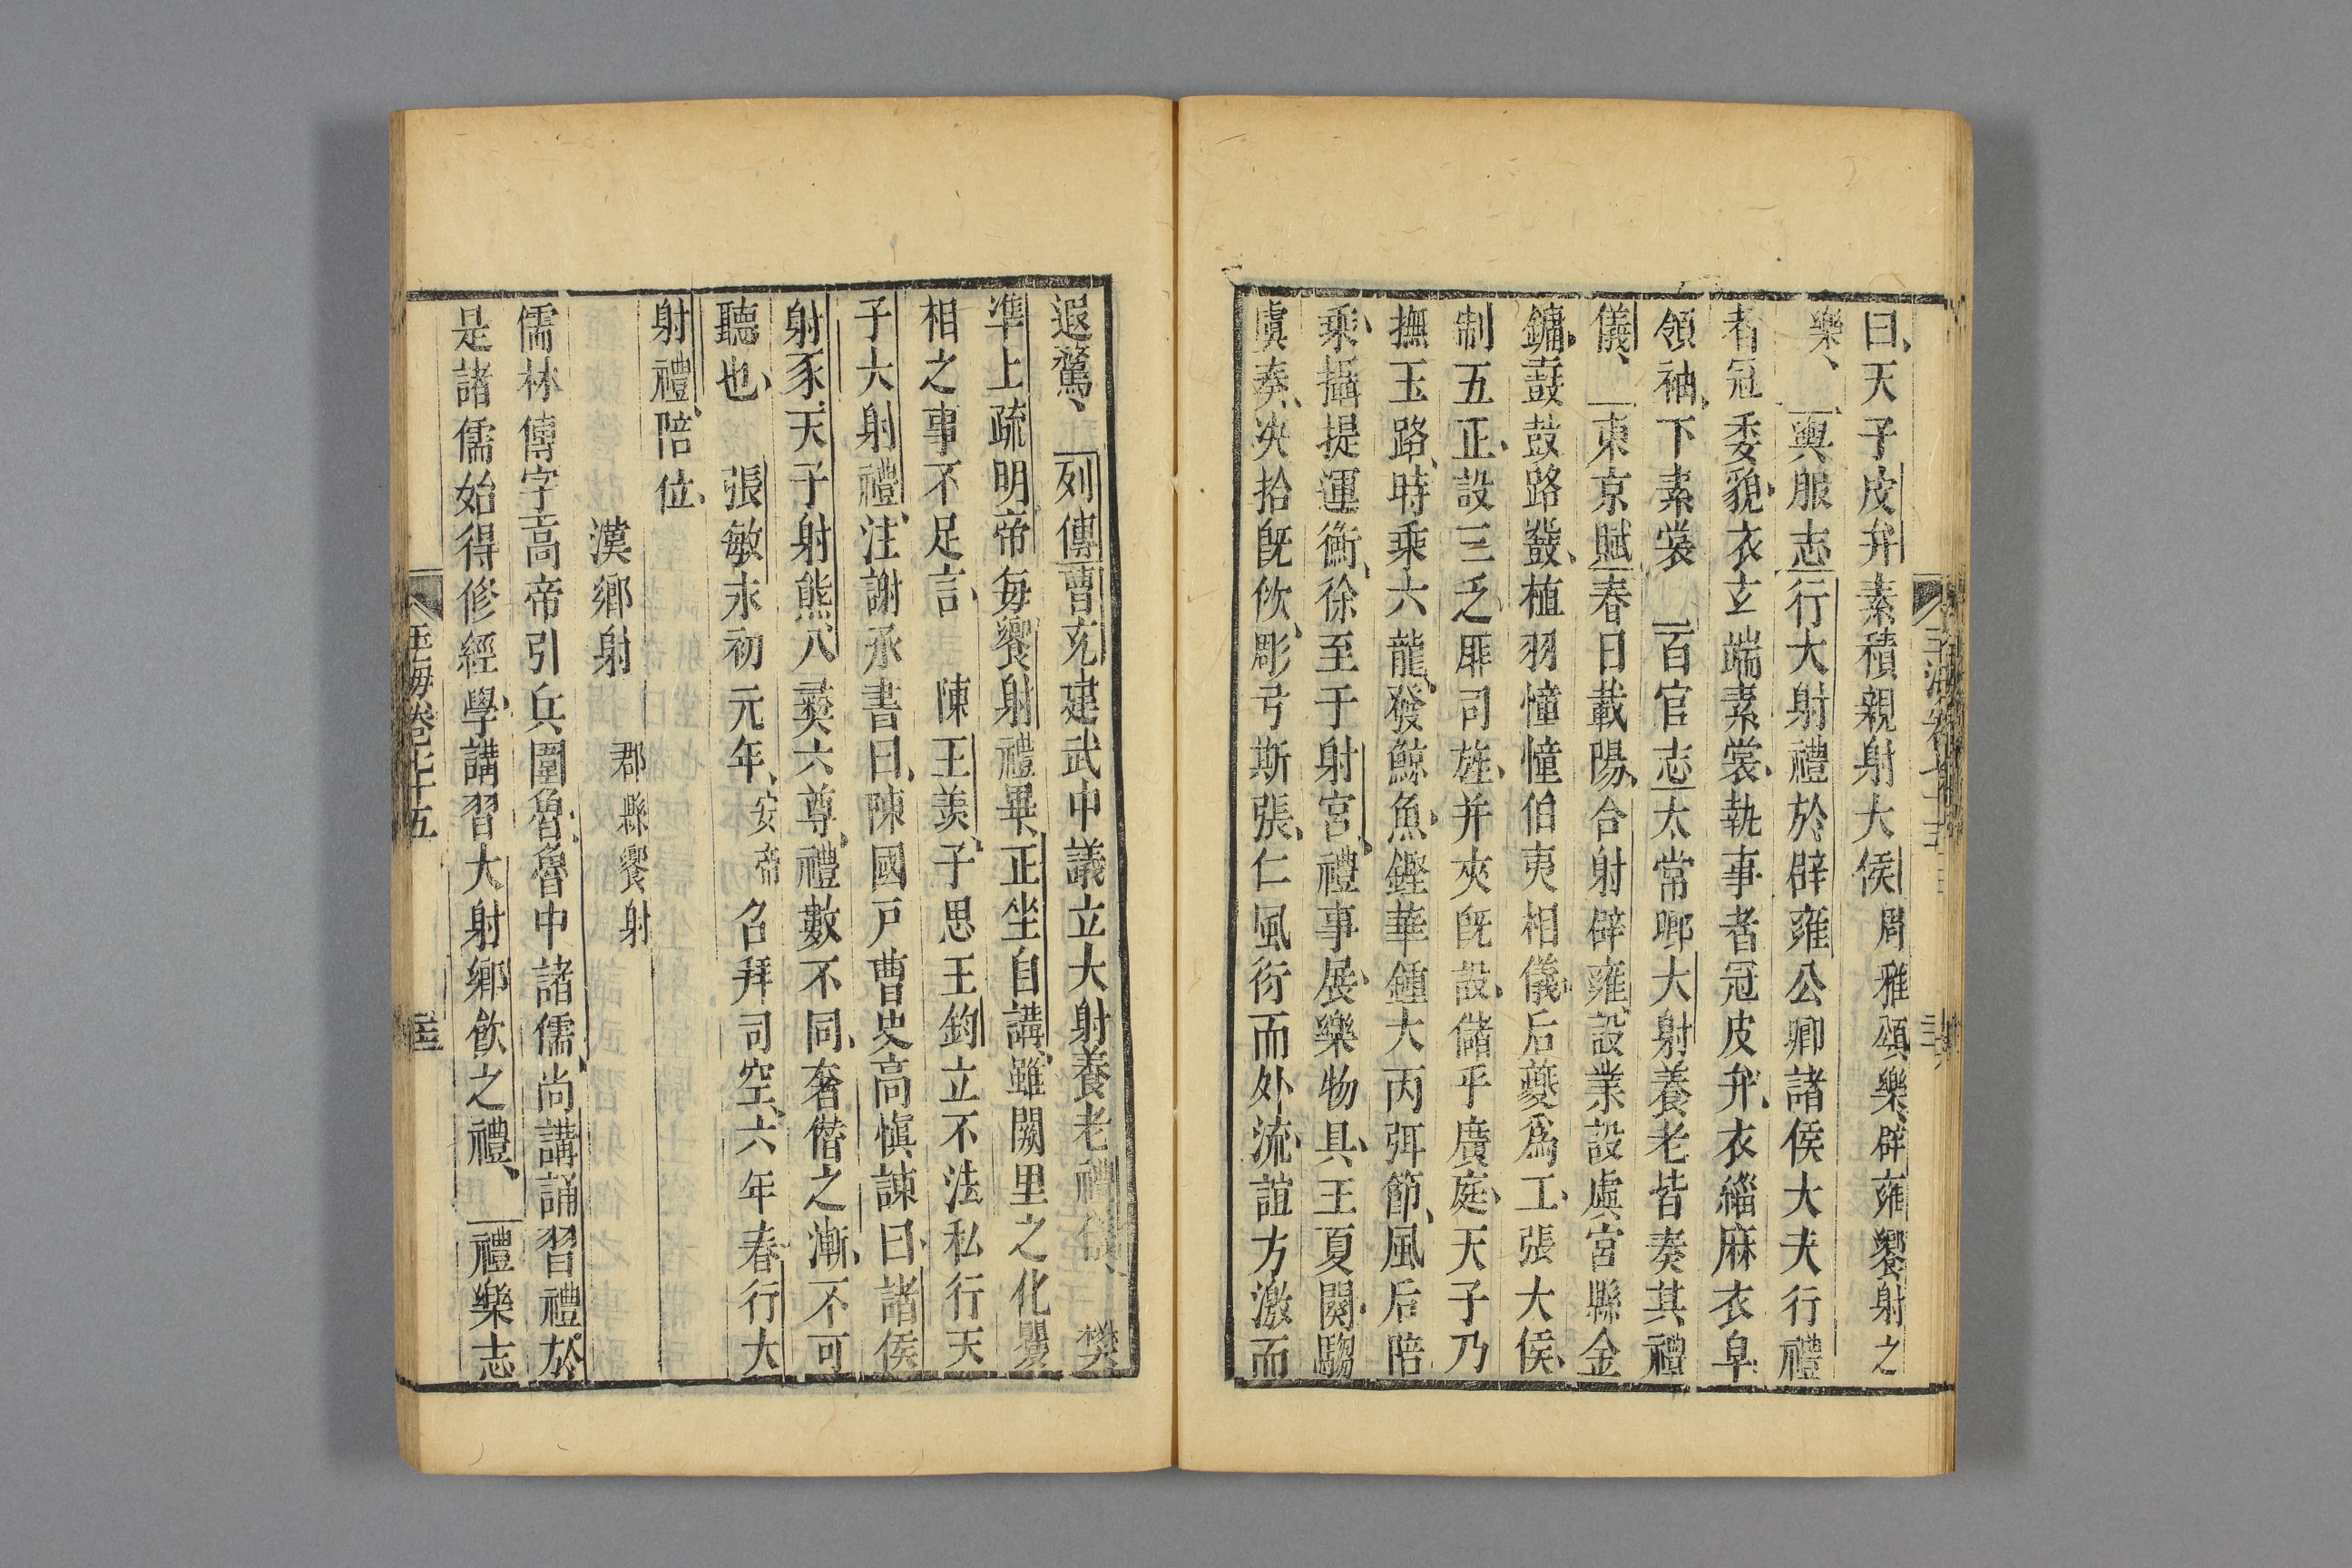 曰、天子皮弁素積親射大侯周雅頌樂、辟雍饗射之
樂、輿服志行大射禮於辟雍公卿諸侯大夫行禮
者冠委貌、衣玄端素裳、執事者冠皮弁、衣緇麻衣皁
領袖、下素裳百官志太常卿大射養老皆奏其禮
儀、東京賦春日載陽、合射辟雍、設業設虡宮縣金
鏞、鼖鼓路鼗、植羽幢幢伯夷相儀、后夔爲工、張大侯、
制五正、設三乏、厞司旌、并夾既設、儲乎廣庭、天子乃
撫玉路、時乘六龍、發鯨魚、鏗華鍾大丙弭節、風后陪
乘、攝提運衡、徐至于射宮、禮事展、樂物具、王夏闋、騶
虞奏、決拾既佽、彫弓斯張、仁風衍而外流、誼方激而
遐騖、列傳曹充建武中議立大射養老禮儀、樊
準上疏明帝每饗射禮畢、正坐自講、雖闕里之化矍
相之事不足言、陳王羨、子思王鈞立不法私行天
子大射禮、注謝承書曰、陳國戸曹史高愼諫曰、諸侯
射豕、天子射熊、八彝六尊、禮數不同、奢僣之漸、不可
聽也、張敏永初元年、安帝召拜司空、六年春、行大
射禮、陪位、
漢鄉射郡縣饗射
儒林傳字高帝引兵圍魯、魯中諸儒、尚講誦習禮、於
是諸儒始得修經學、講習大射鄉飮之禮、禮樂志
玉海卷七十五